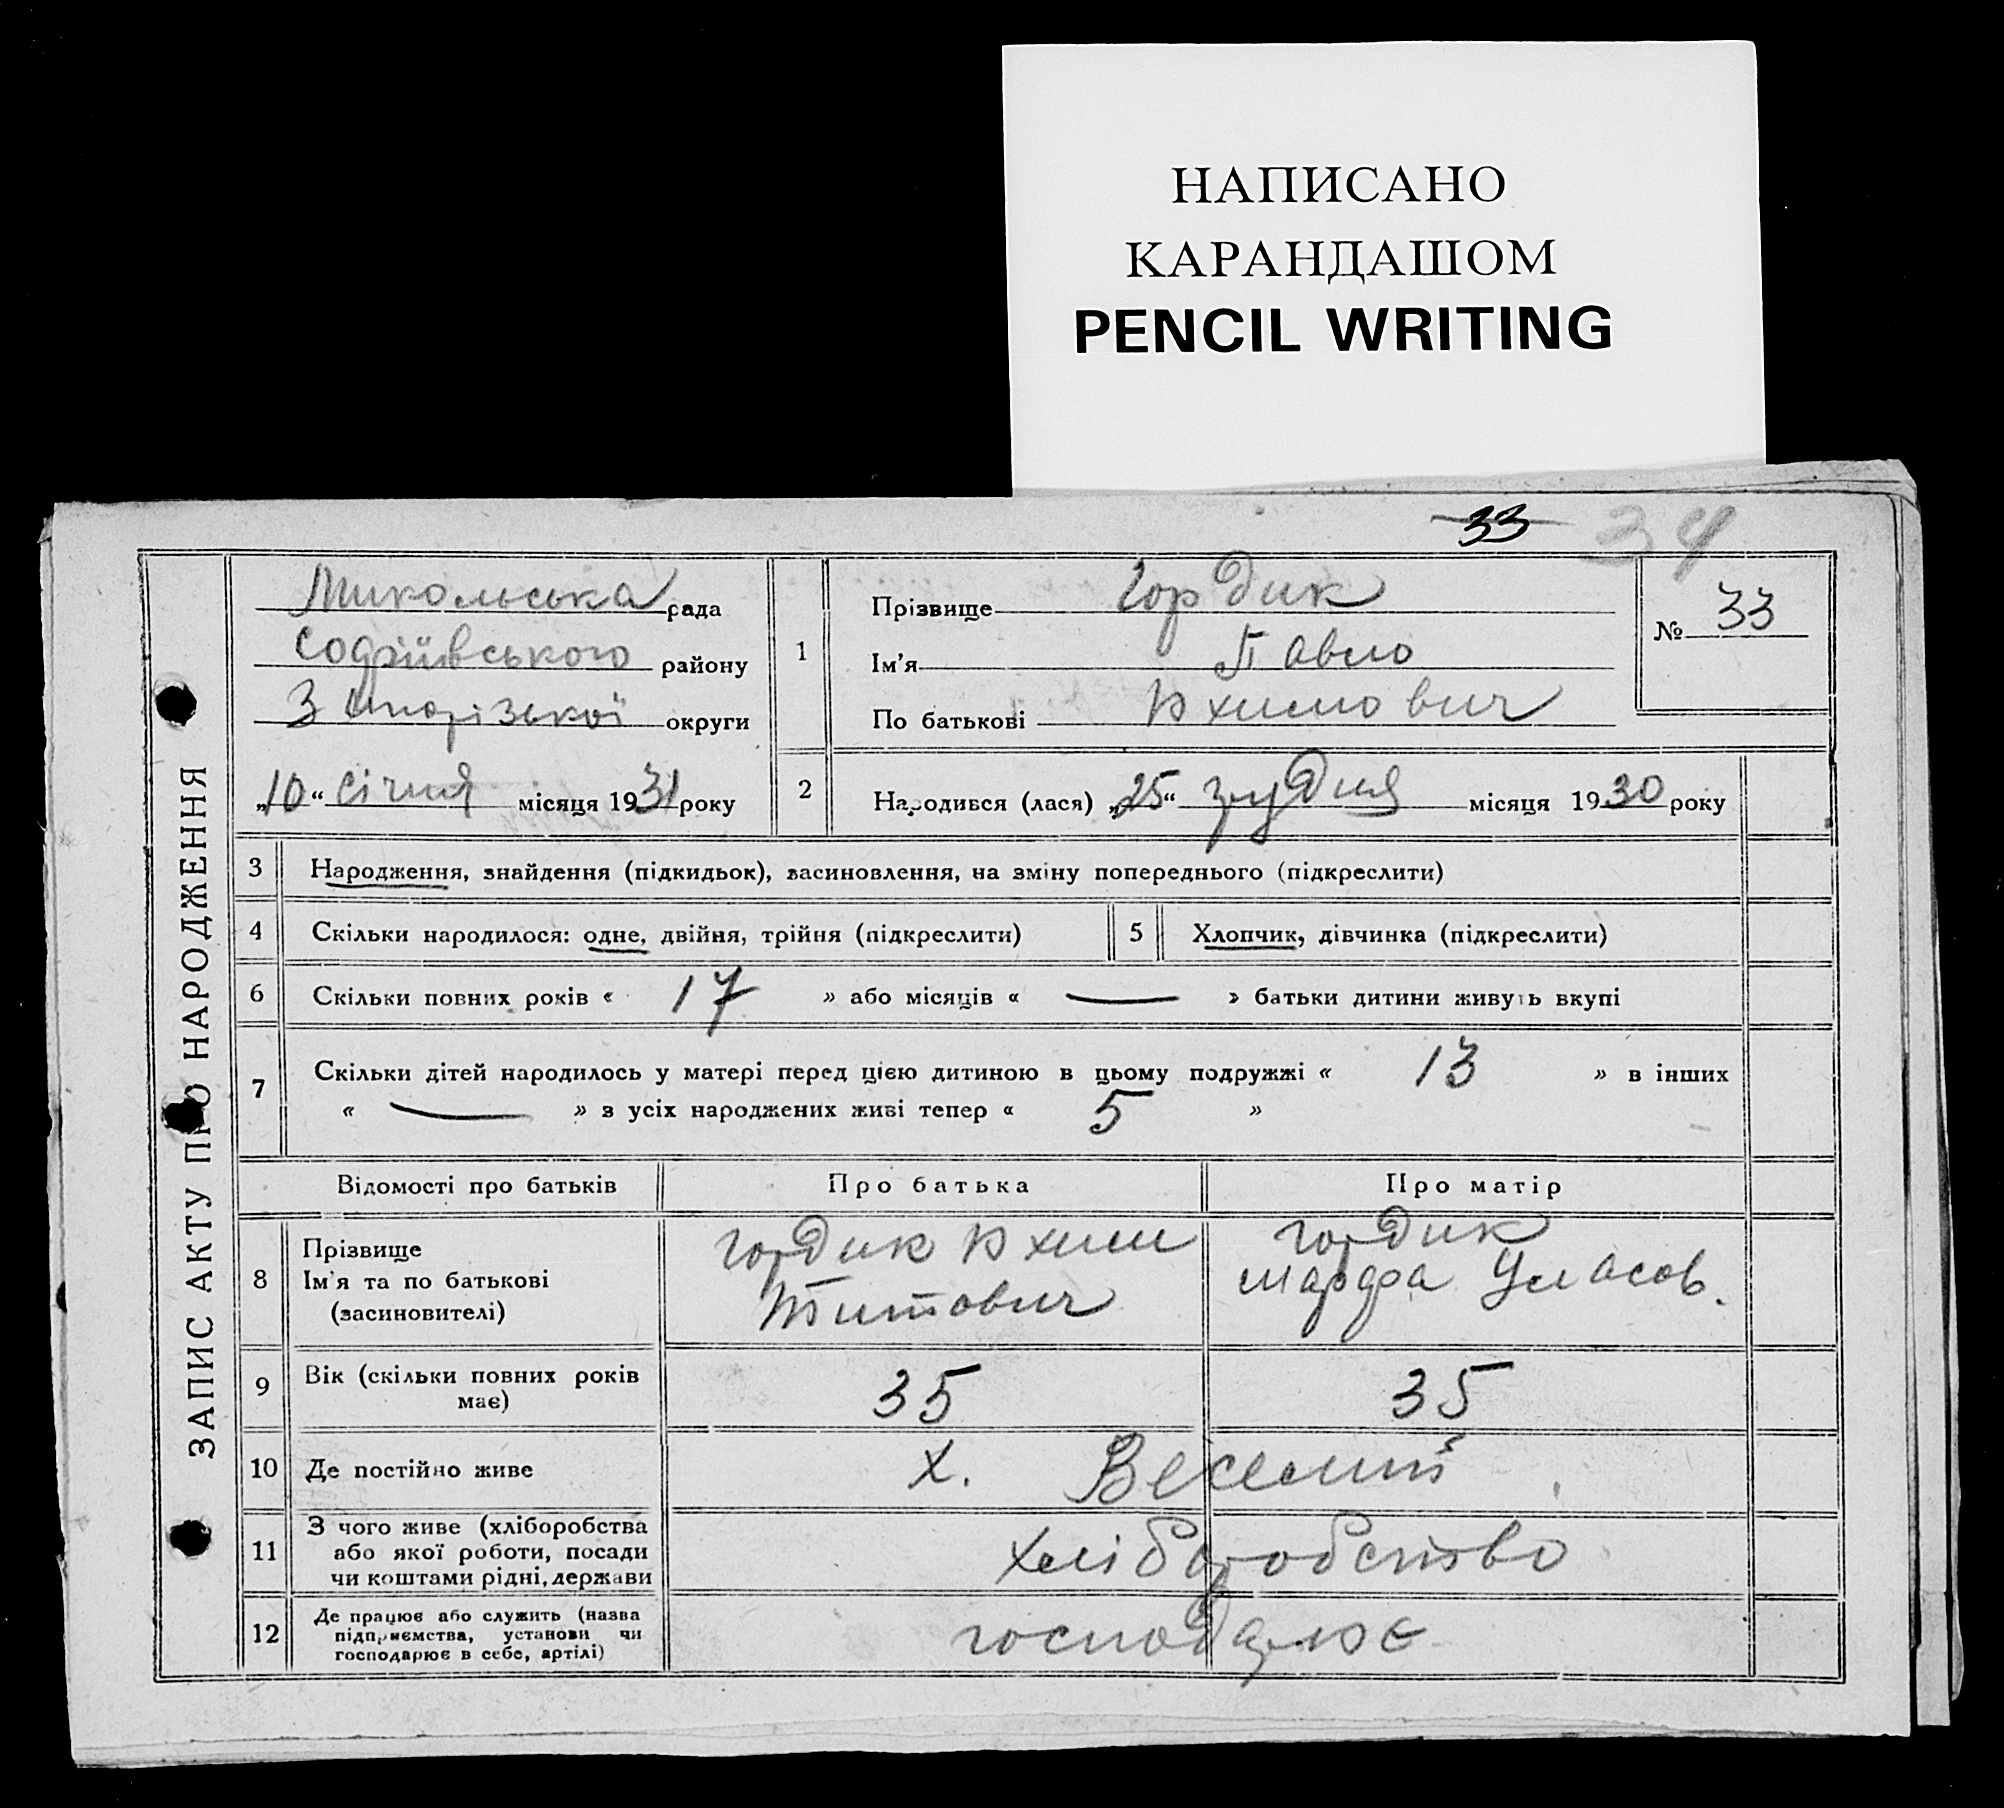 НАПИСАНО
КАРАНДАШОМ
PENCIL WRITING
33 34
ЗАПИС АКТУ ПРО НАРОДЖЕННЯ
Микольська рада
Софіївського району
Запорізької округи
„10“ січня місяця 1931 року
1
Прізвище Гордик
Ім'я Павло
По батькові Юхимович
№ 33
2 Народився (лася) „25“ грудня місяця 1930 року
3 Народження, знайдення (підкидьок), васиновлення, на зміну попереднього (підкреслити)
4 Скільки народилося: одне, двійня, трійня (підкреслити) 5 Хлопчик, дівчинка (підкреслити)
6 Скільки повних років « 17 » або місяців « — » батьки дитини живуть вкупі
7 Скільки дітей народилось у матері перед цією дитиною в цьому подружжі « 13 » в інших
« — » з усіх народжених живі тепер « 5 »
Відомості про батьків Про батька Про матір
8 Прізвище
Ім'я та по батькові
(засиновителі)
Гордик Юхим
Титович
Гордик
Марфа Уласов.
9 Вік (скільки повних років
має)
35 35
10 Де постійно живе х. Веселий
11 З чого живе (хліборобства
або якої роботи, посади
чи коштами рідні, держави
хліборобство
12 Де працює або служить (назва
підприємства, установи чи
господарює в себе, артілі)
господарює